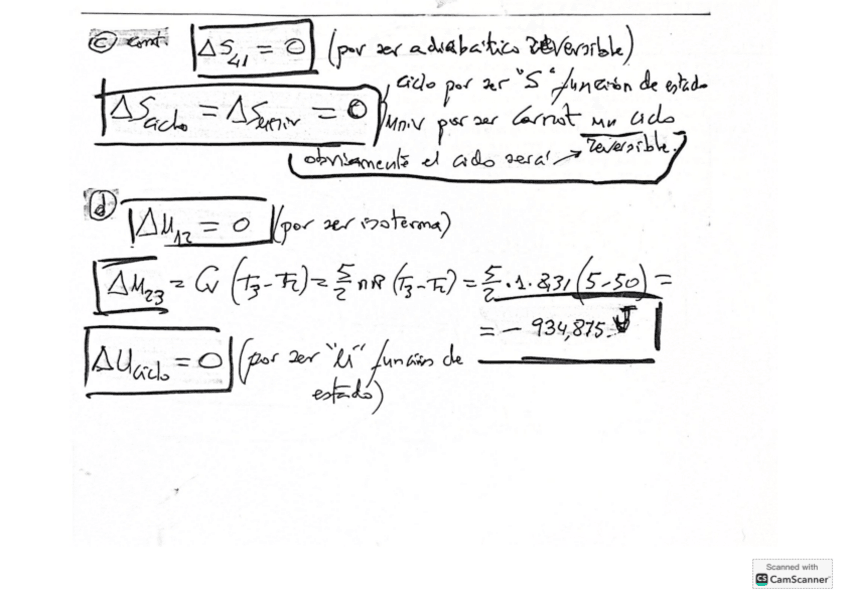 ⓒ cont. ΔS₄₁ = 0 (por ser adiabático reversible)
ΔSciclo = ΔSuniv = 0 ciclo por ser "S" función de estado
univ por ser Carnot un ciclo reversible.
obviamente el ciclo será → reversible.
ⓓ ΔU₁₂ = 0 (por ser isoterma)
ΔU₂₃ = Cv (T₃-T₂) = 5/2 nR (T₃-T₂) = 5/2 · 1 · 8,31 (5-50) =
= - 934,875 J
ΔUciclo = 0 (por ser "U" función de
estado)
Scanned with
CS CamScanner